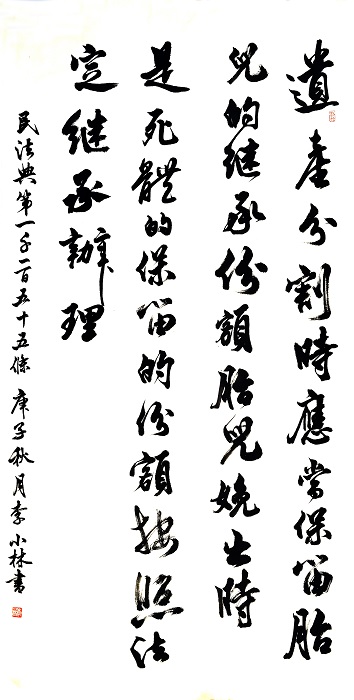 遺產分割時應當保留胎
兒的继承份額胎兒娩出時
是死體的保留的份額按照法
定继承辦理
民法典第一千一百五十五條 庚子秋月李小林書